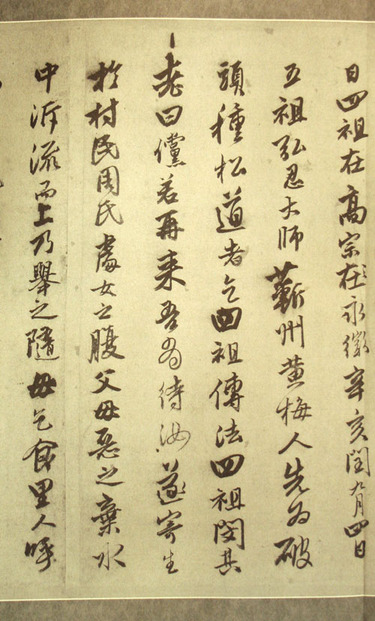 日四祖在高宗在永徽辛亥閏九月四日
五祖弘忍大师蘄州黄梅人先为破
頭種松道者乞四祖傳法四祖閔其
老曰儻若再来吾为待汝遂寄生
於村民周氏處女之腹父母惡之棄水
中泝流而上乃舉之隨母乞食里人呼